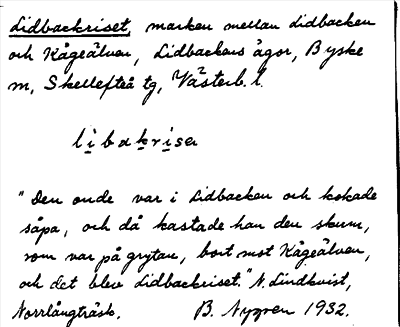 Lidbackriset, marken mellan Lidbacken
och Kågeälven, Lidbackens ägor, Byske
m, Skellefteå tg, Västerb. l.
libakrisa
"Den onde var i Lidbacken och kokade
såpa, och då kastade han den skum,
som var på grytan, bort mot Kågeälven,
och det blev Lidbackriset." N. Lindkvist,
Norrlångträsk. B. Nygren 1932.